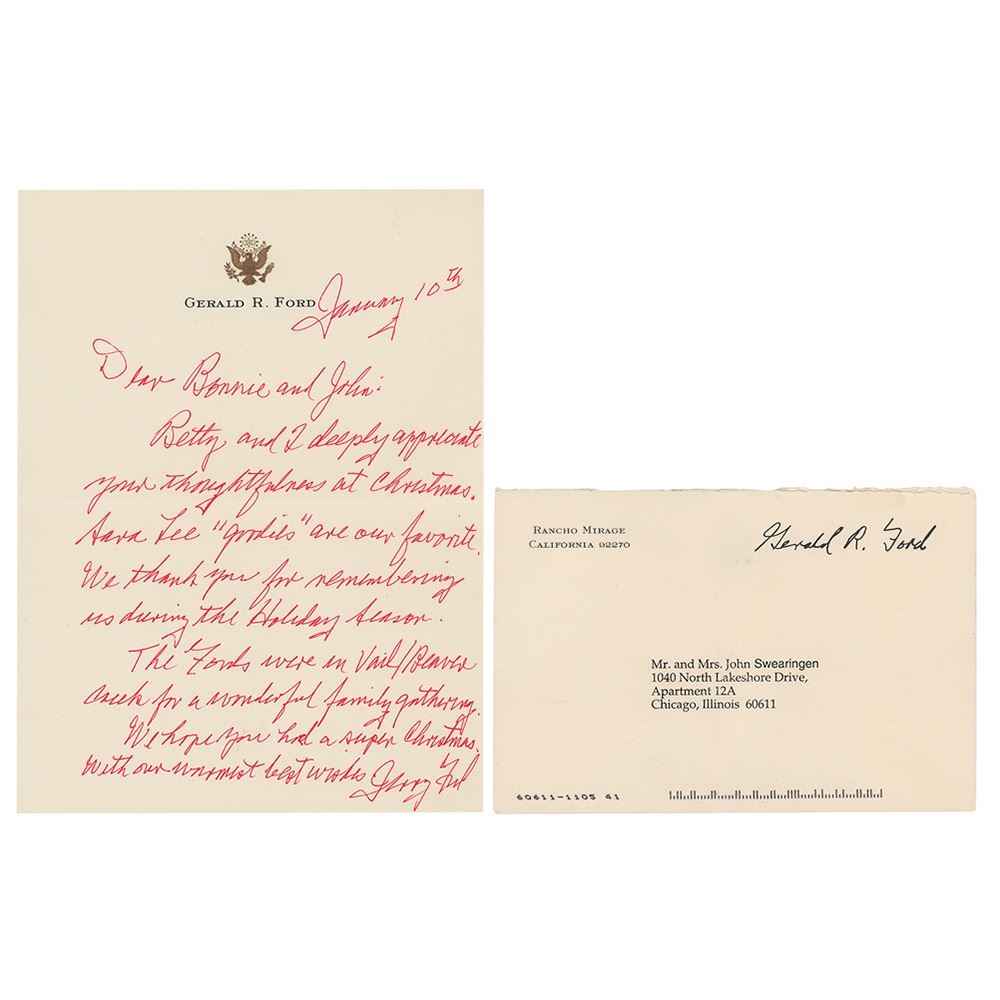 GERALD R. FORD
January 10th
Dear Bonnie and John:
Betty and I deeply appreciate
your thoughtfulness at Christmas.
Sara Lee "goodies" are our favorite.
We thank you for remembering
us during the Holiday Season.
The Fords were in Vail/Beaver
Creek for a wonderful family gathering.
We hope you had a super Christmas.
With our warmest best wishes Jerry Ford
RANCHO MIRAGE
CALIFORNIA 92270
Gerald R. Ford
Mr. and Mrs. John Swearingen
1040 North Lakeshore Drive,
Apartment 12A
Chicago, Illinois 60611
60611-1105 41